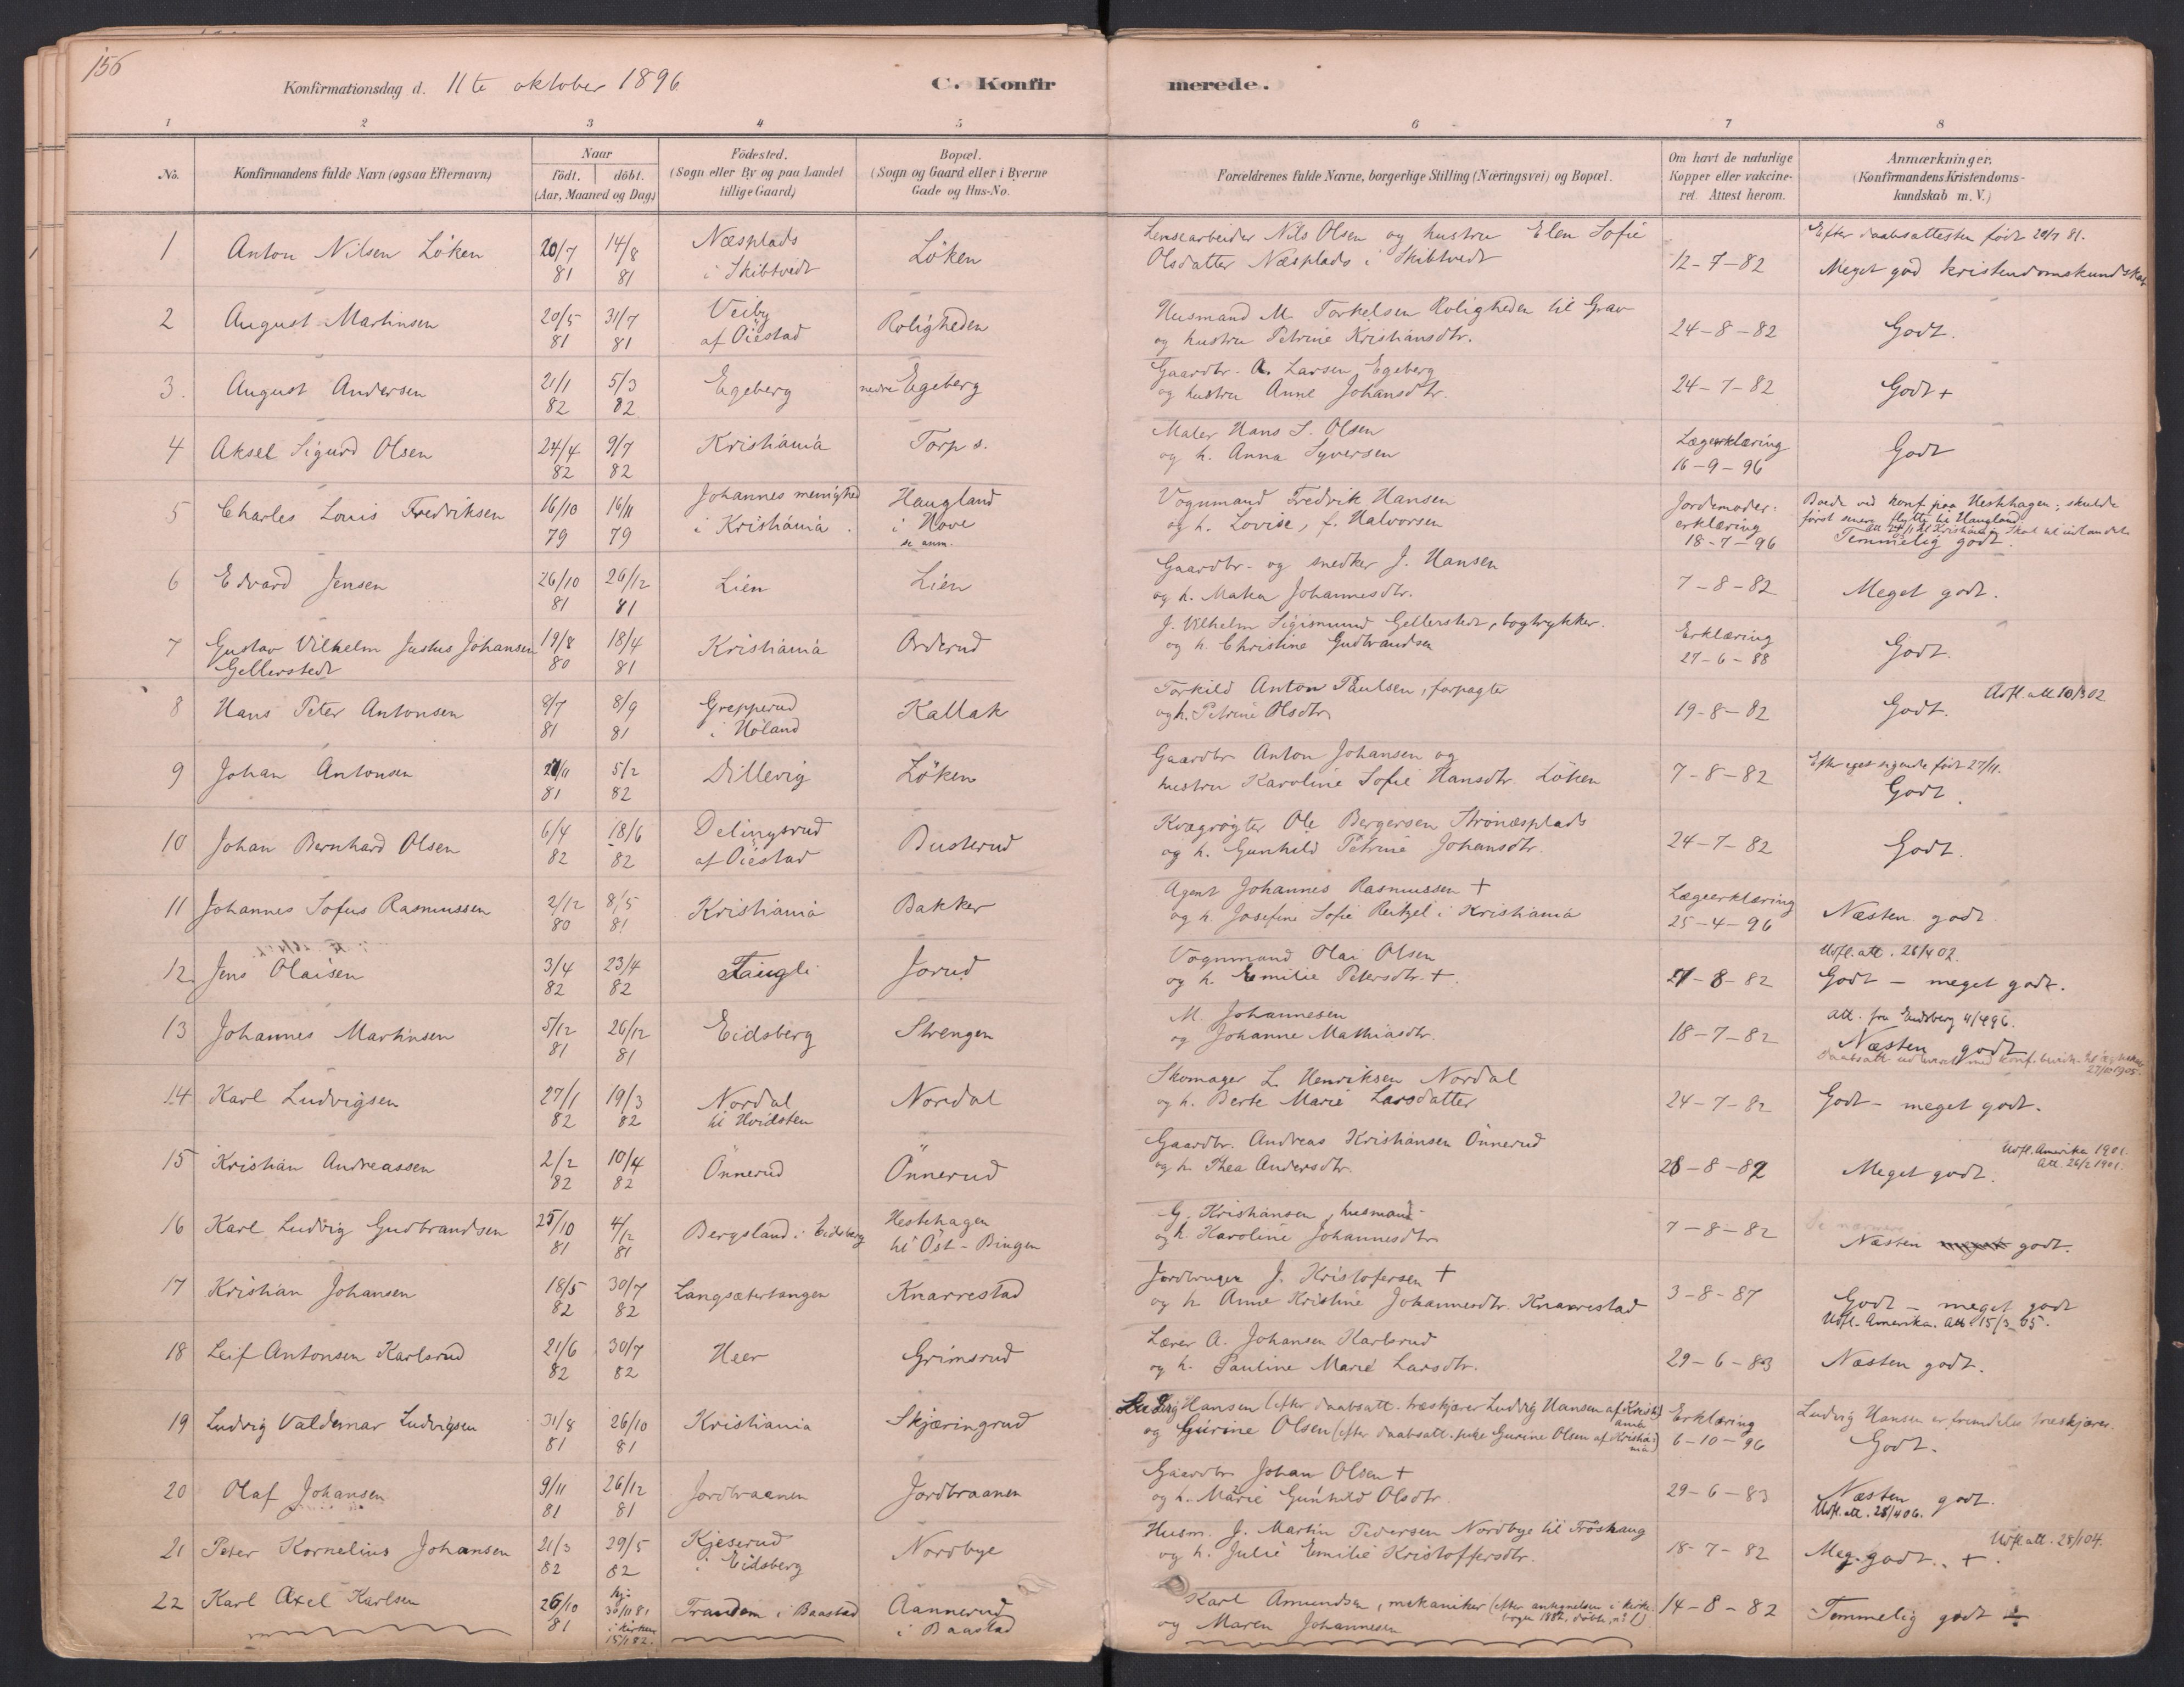 156
Konfirmationsdag d. 11te oktober 1896
C. Konfirmerede.
1 2 3 4 5 6 7 8
No.
Konfirmandens fulde Navn (ogsaa Efternavn)
Naar
födt. döbt.
(Aar, Maaned og Dag)
Födested.
(Sogn eller By og paa Landet
tillige Gaard)
Bopæl.
(Sogn og Gaard eller i Byerne
Gade og Hus-No.
Forældrenes fulde Navne, borgerlige Stilling (Næringsvei) og Bopæl.
Om havt de naturlige
Kopper eller vakcine-
ret. Attest herom.
Anmærkninger.
(Konfirmandens Kristendoms-
kundskab m. V.)
1 Anton Nilsen Löken 20/7 81 14/8 81 Næsplads i Skibtvedt Löken
Lensearbeider Nils Olsen og hustru Elen Sofie
Olsdatter Næsplads i Skibtvedt
12-7-82
Efter daabsattesten født 29/7 81.
Meget god kristendomskundskab
2 August Martinsen 20/5 81 31/7 81 Veiby af Öiestad Roligheden
Husmand M. Torkelsen Roligheden til Grav
og hustru Petrine Kristiansdtr.
24-8-82 Godt.
3. August Andersen 21/1 82 5/3 82 Egeberg nedre Egeberg
Gaardbr. A. Larsen Egeberg
og hustru Anne Johansdtr.
24-7-82 Godt +
4 Aksel Sigurd Olsen 24/4 82 9/7 82 Kristiania Torp s.
Maler Hans S. Olsen
og h. Anna Syversen
Lægeerklæring
16-9-96 Godt
5 Charles Louis Fredriksen 16/10 79 16/11 79 Johannes menighed i Kristiania. Haugland i Hove se anm.
Vognmand Fredrik Hansen
og h. Lovise, f. Halvorsen
Jordemoder-
erklæring
18-7-96
Boede ved konf. paa Hestehagen; skulde
først senere flytte til Haugland.
Temmelig godt.
6 Edvard Jensen 26/10 81 26/12 81 Lien Lien
Gaardbr- og snedker J. Hansen
og h. Maten Johannesdtr.
7-8-82 Meget godt.
7 Gustav Vilhelm Justus Johansen
Gellerstedt 19/8 80 18/4 81 Kristiania Orderud
J. Vilhelm Sigismund Gellerstedt, bogtrykker.
og h. Christine Gudbrandsen
Erklæring
27-6-88 Godt.
8 Hans Peter Antonsen 8/7 81 8/9 81 Grepperud i Höland Kallak
Torkild Anton Paulsen, forpagter
og h. Petrine Olsdtr
19-8-82 Godt. Udfl. att 10/3 02
9 Johan Antonsen 21/11 81 5/2 82 Dillevig Löken
Gaardbr Anton Johansen og
hustru Karoline Sofie Hansdtr. Löken
7-8-82
Efter eget sigende født 27/11.
Godt.
10 Johan Bernhard Olsen 6/4 82 18/6 82 Delingsrud af Öiestad Busterud
Kvægrøgter Ole Bergersen Stronæsplads
og h. Gunhild Petrine Johansdtr.
24-7-82 Godt.
11 Johannes Sofus Rasmussen 2/12 80 8/5 81 Kristiania Bakker
Agent Johannes Rasmussen +
og h. Josefine Sofie Rentzel i Kristiania
Lægeerklæring
25-4-96 Næsten godt
12 Jens Olaisen 3/4 82 23/4 82 Taugli Jorud
Vognmand Olai Olsen
og h. Emilie Petersdtr. +.
21-8-82
Udfl. att. 28/4 02.
Godt - meget godt.
13 Johannes Martinsen 5/12 81 26/12 81 Eidsberg Strengen
M. Johannesen
og Johanne Mathiasdtr.
18-7-82
Att. fra Eidsberg 4/4 96.
Næsten godt
14 Karl Ludvigsen 27/1 82 19/3 82 Nordal til Hvidsten Nordal
Skomager L. Henriksen Nordal
og h. Berte Marie Larsdatter
24-7-82 Godt - meget godt.
15 Kristian Andreassen 2/2 82 10/4 82 Önnerud Önnerud
Gaardbr. Andreas Kristiansen Önnerud
og h. Thea Andersdtr.
28-8-82 Meget godt.
Udfl. Amerika 1901.
Att. 26/2 1901.
16 Karl Ludvig Gudbrandsen 25/10 81 4/12 81 Bergsland i Eidsberg Hestehagen til Öst-Bingen
G. Kristiansen, husmand
og h. Karoline Johannesdtr
7-8-82
Se nærmere
Næsten meget godt.
17 Kristian Johansen 18/5 82 30/7 82 Langsætertangen Knarrestad
Jordbruger J. Kristofersen +
og h. Anne Kristine Johannesdtr. Knarrestad
3-8-87 Godt - meget godt
Udfl. Amerika. Att. 15/3 05.
18 Leif Antonsen Karlsrud 21/6 82 30/7 82 Heer Grimsrud
Lærer A. Johansen Karlsrud
og h. Pauline Marie Larsdtr.
29-6-83 Næsten godt.
19 Ludvig Valdemar Ludvigsen 31/8 81 26/10 81 Kristiania Skjæringrud
Ludvig Hansen (efter daabsatt. træskjærer Ludvig Hansen af Kristiania)
og Gurine Olsen (efter daabsatt. pike Gurine Olsen af Kristiania)
Erklæring
6-10-96
Ludvig Hansen er fremdeles træskjærer.
Godt.
20 Olaf Johansen 9/11 81 26/12 81 Jordbraanen Jordbraanen
Gaardbr Johan Olsen +
og h. Marie Gunhild Olsdtr.
29-6-83 Næsten godt.
Udfl. att. 28/4 06.
21 Peter Kornelius Johansen 21/3 82 29/5 82 Kjeserud i Eidsberg Nordbye
Husm. J. Martin Pedersen Nordbye til Fröshaug
og h. Julie Emilie Kristoffersdtr.
18-7-82 Meg. godt. +
Udfl att. 28/1 04.
22 Karl Axel Karlsen 26/10 81 hj. 30/11 81 i kirken 15/1 82. Trandem i Baastad Aannerud i Baastad
Karl Amundsen, mekaniker (efter antegnelsen i kirke-
bogen 1882, döbte, no 1)
og Maren Johannesen
14-8-82 Temmelig godt